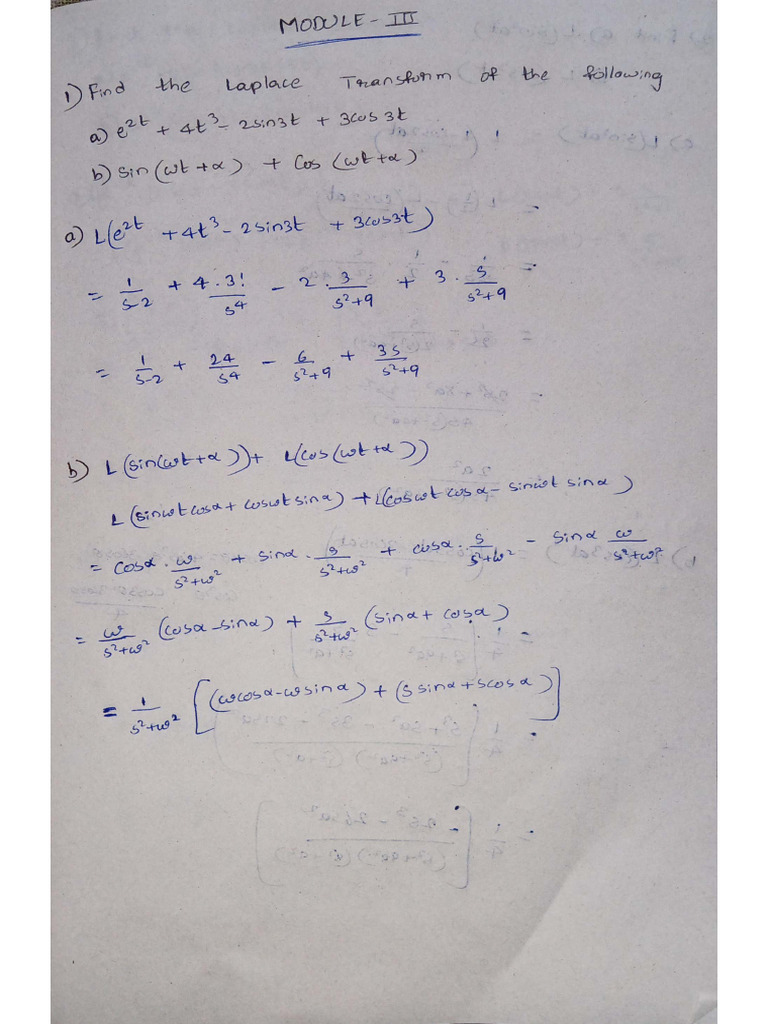 MODULE - III
1) Find the Laplace Transform of the following
a) e^2t + 4t^3 - 2sin3t + 3cos3t
b) sin(wt+α) + Cos(wt+α)
a) L(e^2t + 4t^3 - 2sin3t + 3cos3t)
= 1/s-2 + 4.3!/s^4 - 2.3/s²+9 + 3.s/s²+9
= 1/s-2 + 24/s^4 - 6/s²+9 + 3s/s²+9
b) L(sin(wt+α)) + L(cos(wt+α))
L(sinwt cosα + coswt sinα) + L(coswt cosα - sinwt sinα)
= cosα . w/s²+w² + sinα . s/s²+w² + cosα . s/s²+w² - sinα w/s²+w²
= w/s²+w² (cosα - sinα) + s/s²+w² (sinα + cosα)
= 1/s²+w² [(wcosα - wsinα) + (s sinα + scosα)]